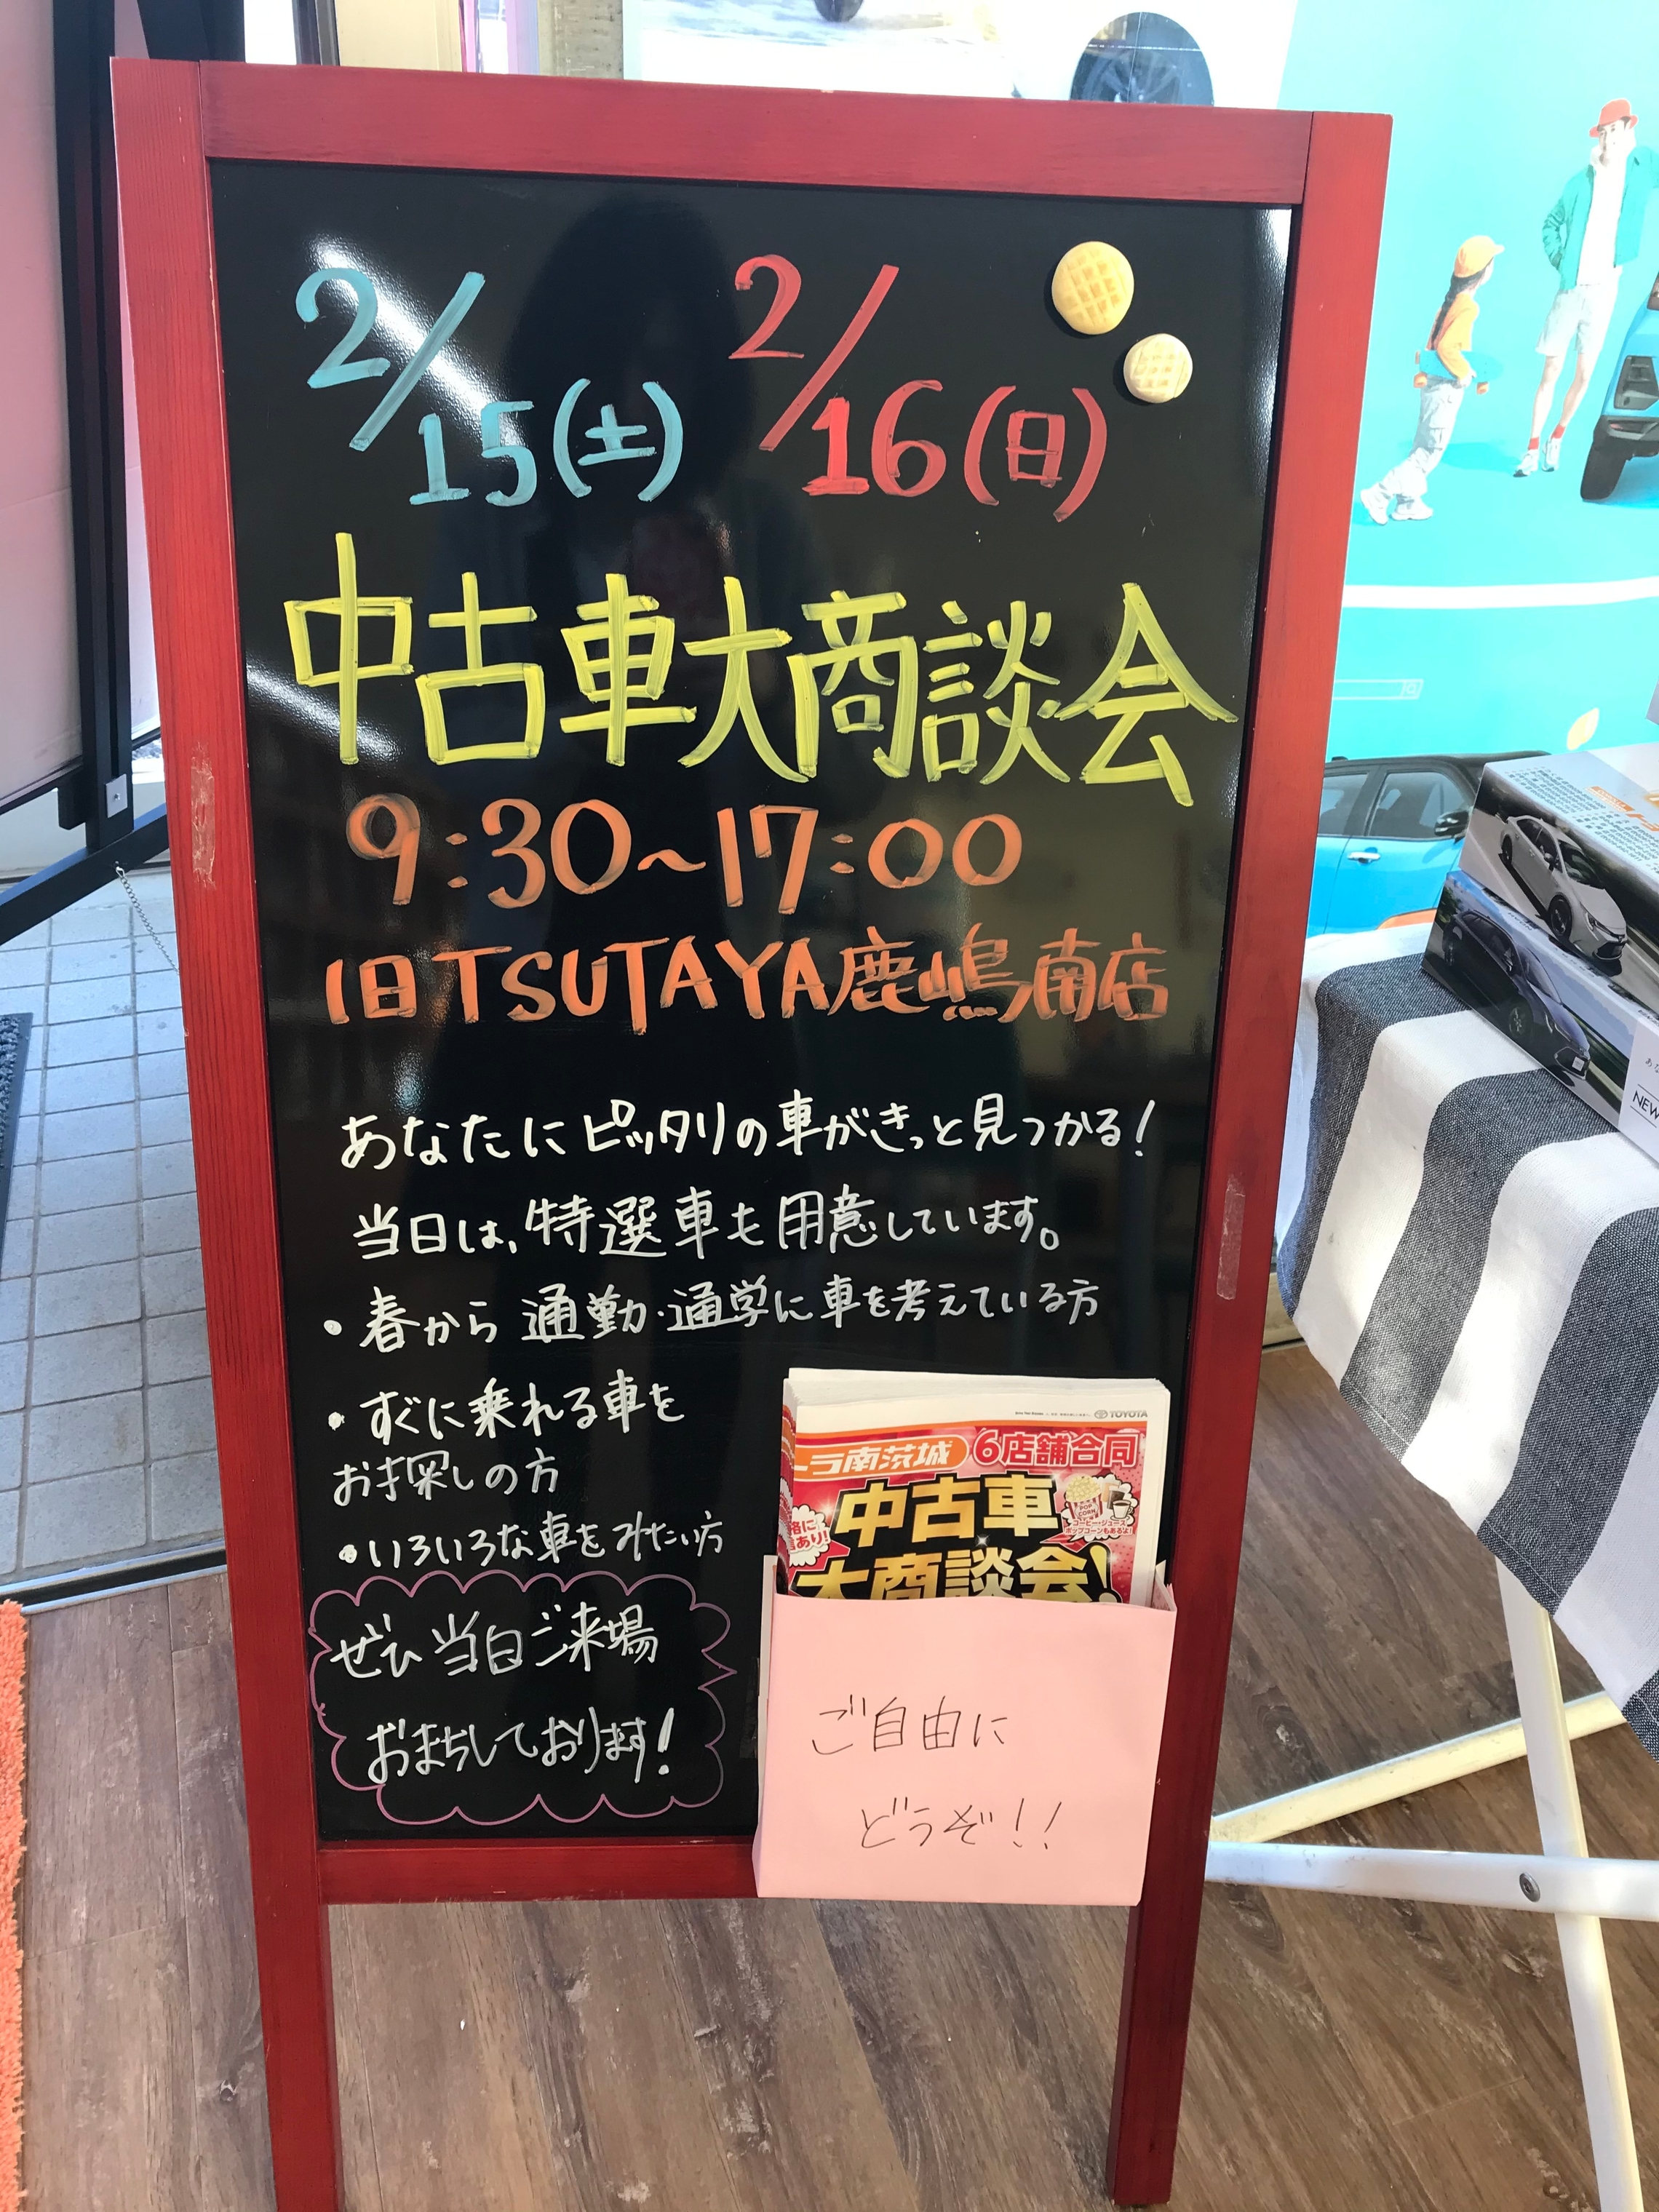 2/15(土) 2/16(日)
中古車大商談会
9:30~17:00
旧TSUTAYA鹿嶋南店
あなたにピッタリの車がきっと見つかる!
当日は、特選車も用意しています。
・春から通勤・通学に車を考えている方
・すぐに乗れる車を
お探しの方
・いろいろな車をみたい方
ぜひ当日ご来場
おまちしております!
TOYOTA
南茨城 6店舗合同
中古車
POP CORN
コーヒー・ジュース
ポップコーンもあるよ!
大商談会!
ご自由に
どうぞ!!
NEW